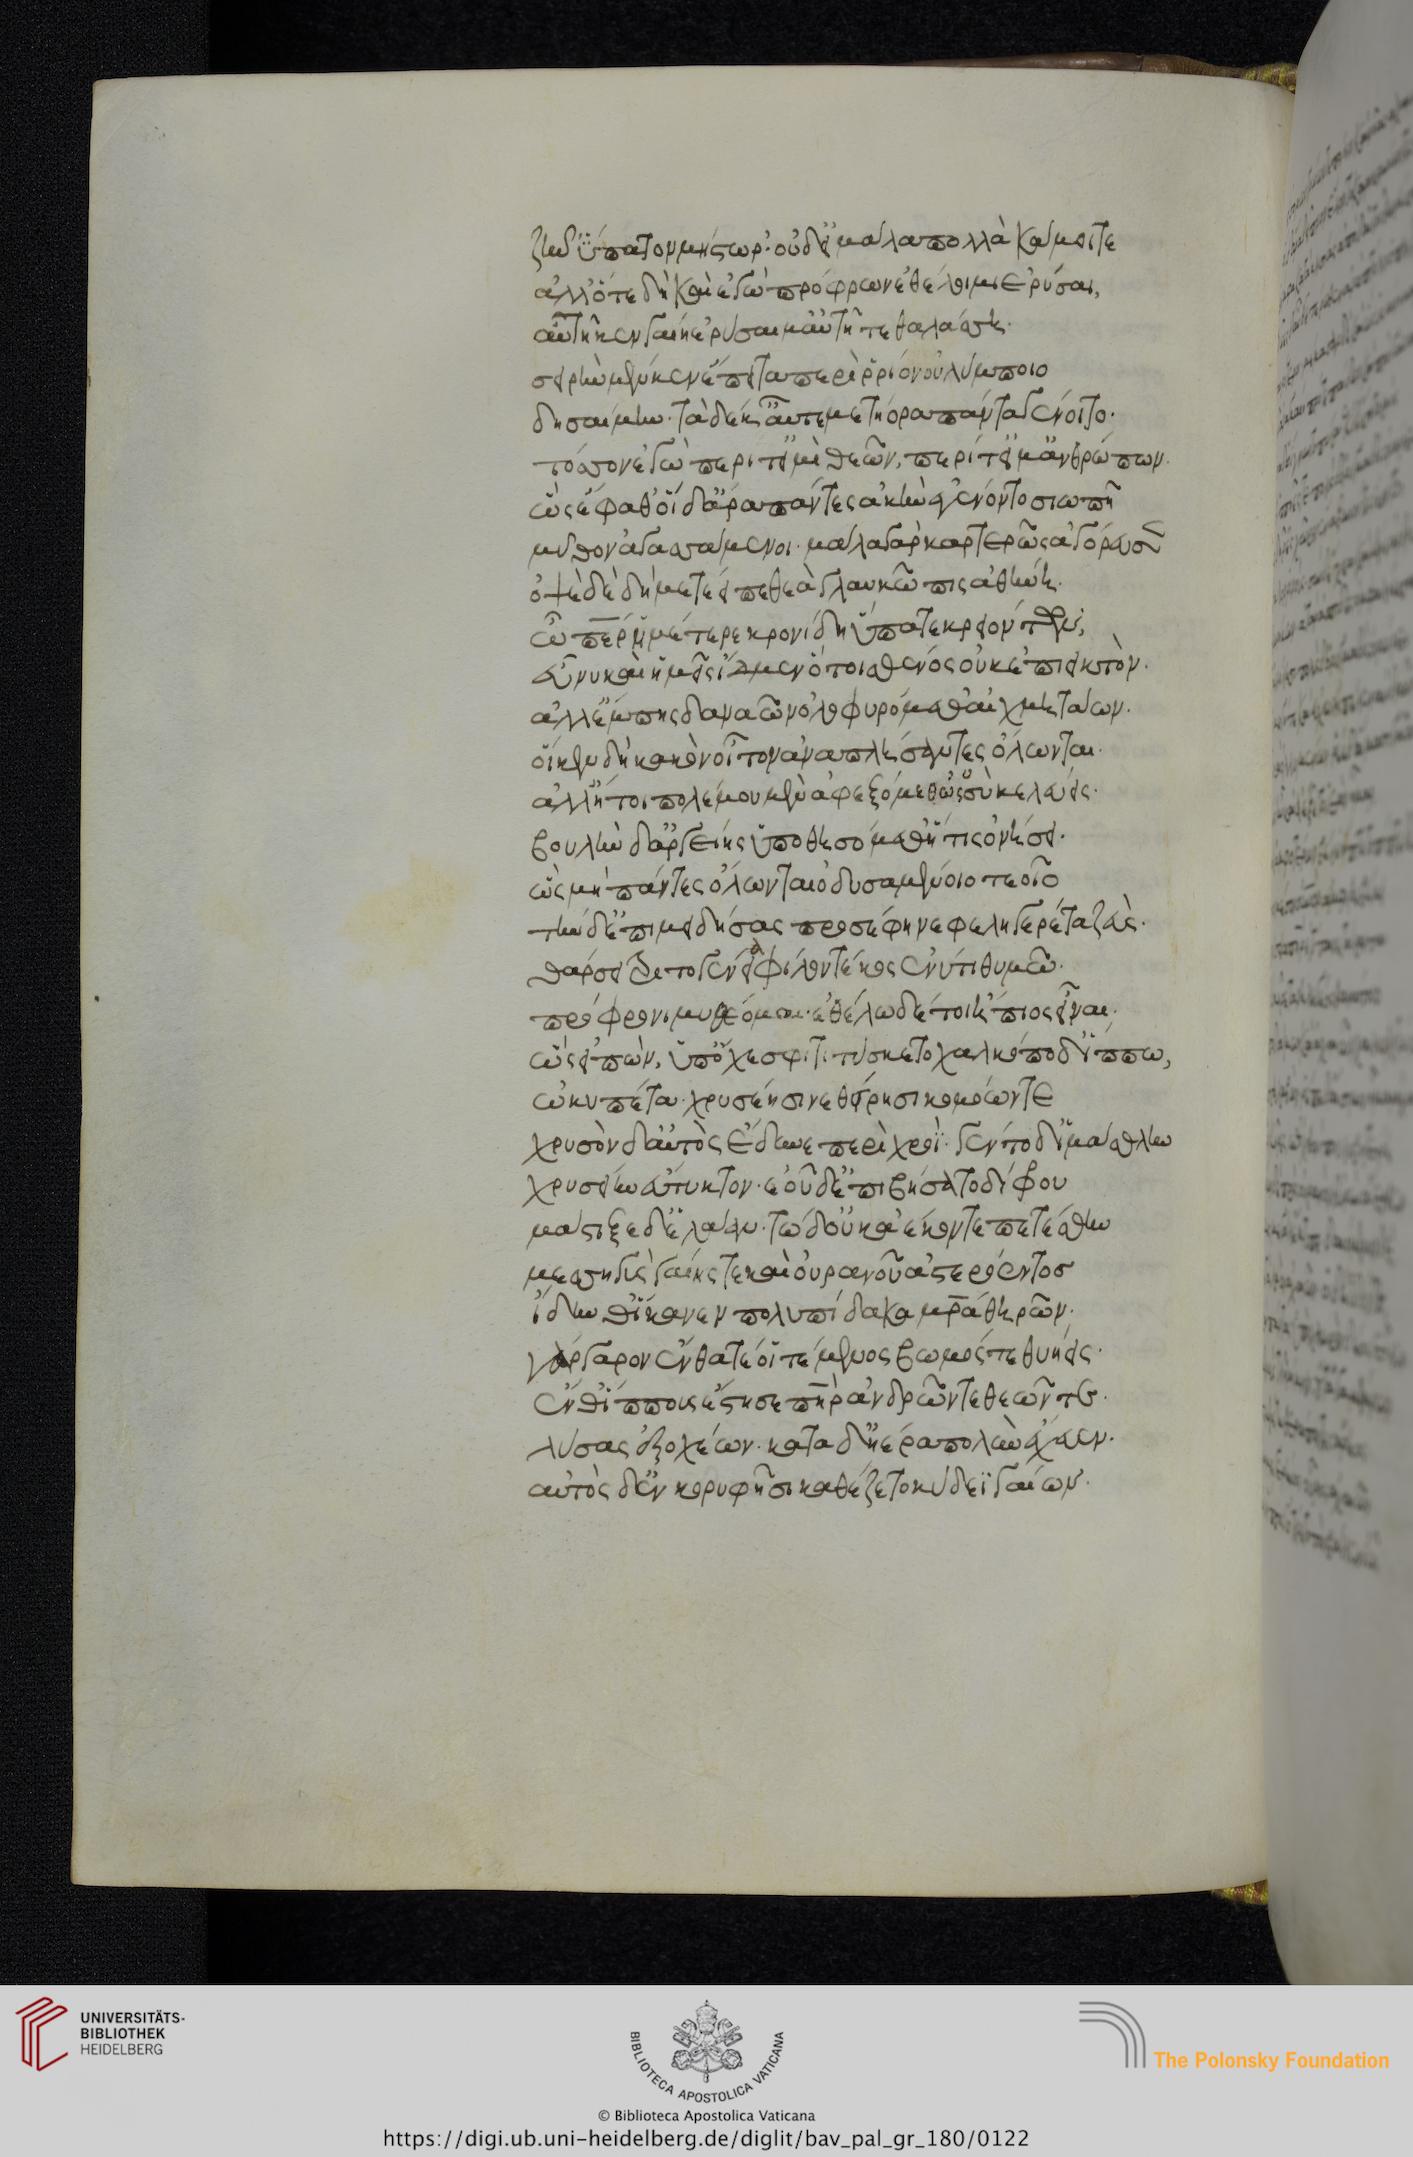 ζῆν' ὕπατον μήστωρ'· οὐδ' εἰ μάλα πολλὰ κάμοιτε
ἀλλ' ὅτε δὴ καὶ ἐγὼ πρόφρων ἐθέλοιμι ἐρύσαι,
αὐτῆ κεν γαίη ἐρύσαιμ' αὐτῆ τε θαλάσση.
σειρὴν μέν κεν ἔπειτα περὶ ῥίον οὐλύμποιο
δησαίμην· τὰ δέ κ' αὖτε μετήορα πάντα γένοιτο.
τόσσον ἐγὼ περί τ' εἰμὶ θεῶν, περί τ' εἴμ' ἀνθρώπων.
ὣς ἔφαθ' οἵ δ' ἄρα πάντες ἀκὴν ἐγένοντο σιωπῆ
μῦθον ἀγασσάμενοι· μάλα γὰρ καρτερῶς ἀγόρευσεν
ὀψὲ δὲ δὴ μετέειπε θεὰ γλαυκῶπις ἀθήνη.
ὦ περ ἡμέτερε κρονίδη ὕπατε κρειόντων,
εὖ νυ καὶ ἡμεῖς ἴδμεν ὅ τοι σθένος οὐκ ἐπιεικτὸν.
ἀλλ' ἔμπης δαναῶν ὀλοφυρόμεθ' αἰχμητάων.
οἵ κεν δὴ κακὸν οἶτον ἀναπλήσαντες ὄλωνται.
ἀλλ' ἤτοι πολέμου μὲν ἀφεξόμεθ' ὡς σὺ κελεύεις.
βουλὴν δ' ἀργείοις ὑποθησόμεθ' ἥ τις ὀνήσει.
ὡς μὴ πάντες ὄλωνται ὀδυσσαμένοιο τεοῖο
τὴν δ' ἐπιμειδήσας προσέφη νεφεληγερέτα ζεὺς.
θάρσει τριτογένεια φίλον τέκος οὔ νύ τι θυμῶ.
πρόφρονι μυθέομαι· ἐθέλω δέ τοι ἤπιος εἶναι.
ὣς εἰπὼν, ὑπ' ὄχεσφι τιτύσκετο χαλκόποδ' ἵππω,
ὠκυπέτα· χρυσέησιν ἐθείρησι κομόωντε
χρυσὸν δ' αὐτὸς ἔδυνε περὶ χροΐ· γέντο δ' ἱμάσθλην
χρυσείην εὔτυκτον· ἑοῦ δ' ἐπιβήσατο δίφρου
μάστιξε δ' ἐλάαν· τὼ δ' οὐκ ἀέκοντε πετέσθην
μεσσηγὺς γαίης τε καὶ οὐρανοῦ ἀστερόεντος
ἴδην δ' ἵκανεν πολυπίδακα μρα θηρῶν.
γάργαρον ἔνθα τέ οἱ τέμενος βωμός τε θυήεις.
ἔνθ' ἵππους ἔστησε πηρ ἀνδρῶν τε θεῶν τε.
λύσας ἐξ ὀχέων· κατὰ δ' ἠέρα πολὺν ἔχευεν.
αὐτὸς δ' ἐν κορυφῆσι καθέζετο κύδεϊ γαίων.
UNIVERSITÄTS-
BIBLIOTHEK
HEIDELBERG
BIBLIOTECA APOSTOLICA VATICANA
The Polonsky Foundation
© Biblioteca Apostolica Vaticana
https://digi.ub.uni-heidelberg.de/diglit/bav_pal_gr_180/0122